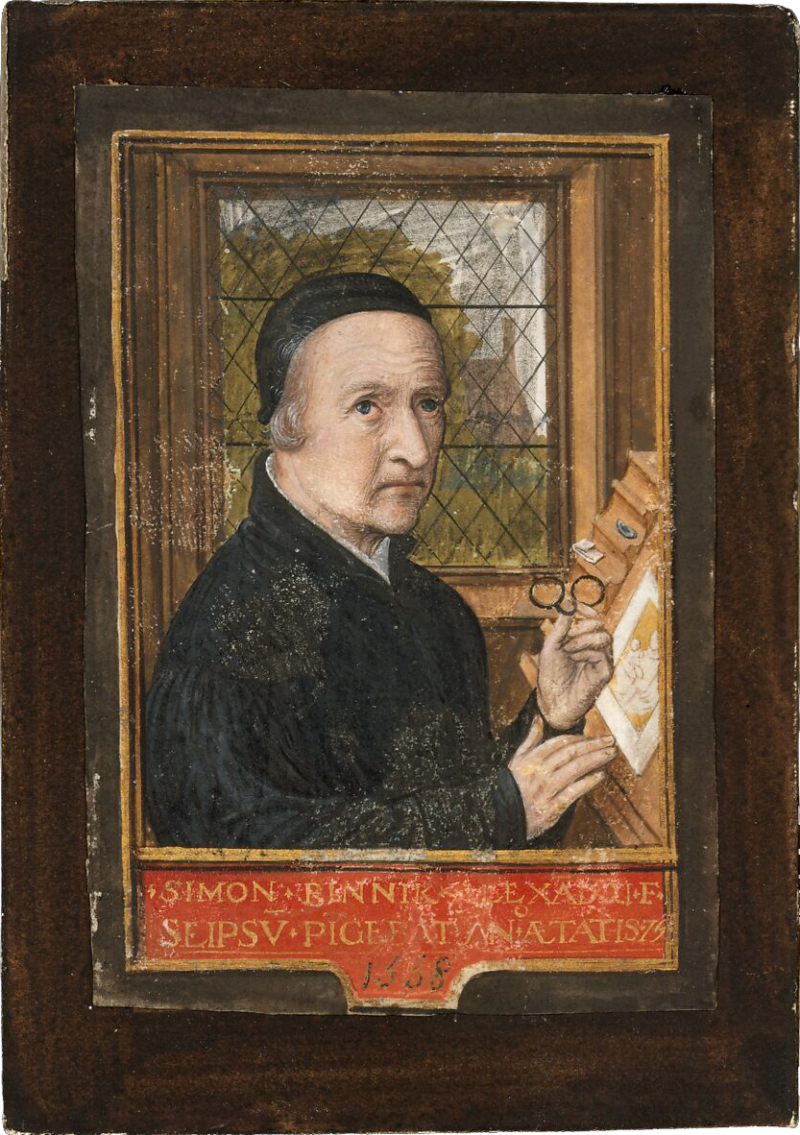 ·SIMON·BINNIK· ALEXADRI·F·
SEIPSV̄·PIGEBAT·AN̊·ÆTATIS·75
1558